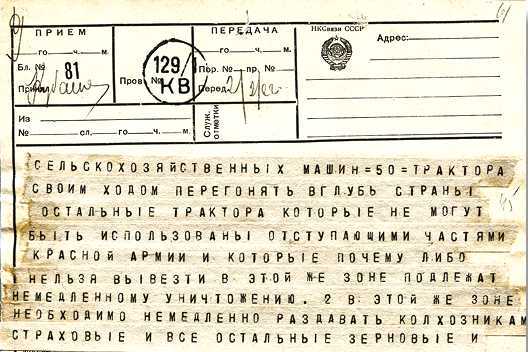 ПРИЕМ
го ч. м.
Бл. № 81
Прин.
129/1
КВ
Пров. №
ПЕРЕДАЧА
го ч. м.
Пор. № пр. №
Перед.
НКСвязи СССР
Адрес:
Из
№ сл. го ч. м.
Служ. отметки
СЕЛЬСКОХОЗЯЙСТВЕННЫХ МАШИН=50=ТРАКТОРА
СВОИМ ХОДОМ ПЕРЕГОНЯТЬ ВГЛУБЬ СТРАНЫ
ОСТАЛЬНЫЕ ТРАКТОРА КОТОРЫЕ НЕ МОГУТ
БЫТЬ ИСПОЛЬЗОВАНЫ ОТСТУПАЮЩИМИ ЧАСТЯМИ
КРАСНОЙ АРМИИ И КОТОРЫЕ ПОЧЕМУ ЛИБО
НЕЛЬЗЯ ВЫВЕЗТИ В ЭТОЙ ЖЕ ЗОНЕ ПОДЛЕЖАТ
НЕМЕДЛЕННОМУ УНИЧТОЖЕНИЮ. 2 В ЭТОЙ ЖЕ ЗОНЕ
НЕОБХОДИМО НЕМЕДЛЕННО РАЗДАВАТЬ КОЛХОЗНИКАМ
СТРАХОВЫЕ И ВСЕ ОСТАЛЬНЫЕ ЗЕРНОВЫЕ И